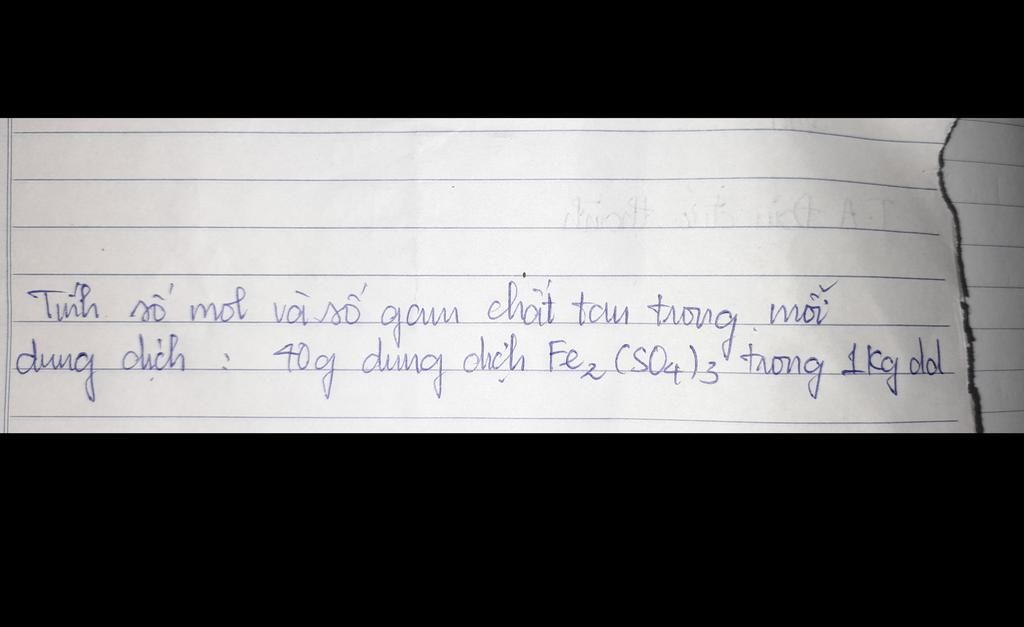 Tính số mol và số gam chất tan trong mỗi
dung dịch : 40g dung dịch Fe₂(SO₄)₃ trong 1kg dd